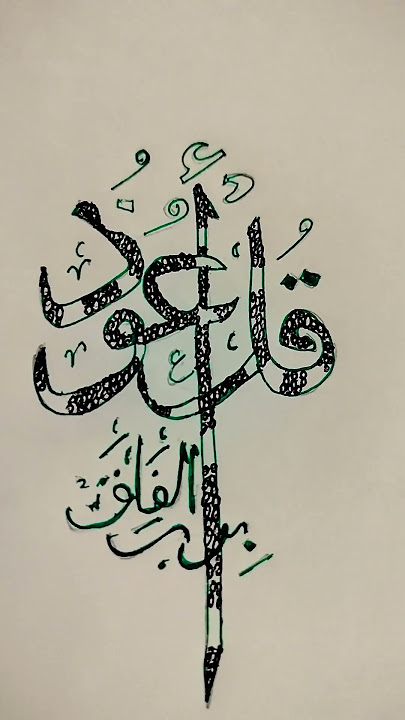 قُلْ أَعُوذُ
بِرَبِ الفَلَقَ